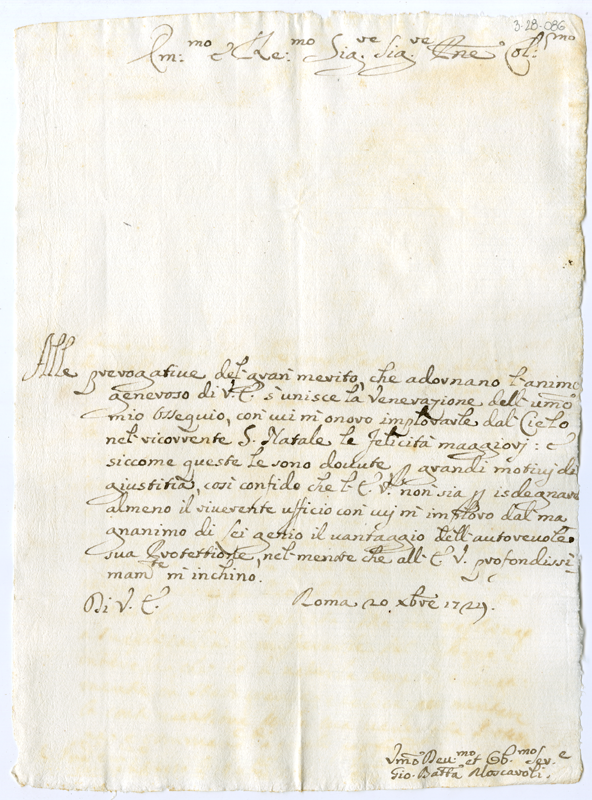 3-28-086
Em:mo e Re:mo Sig.re Sig.re Prne Col:mo
Alle prerogative del gran merito, che adornano l'animo
generoso di V. E. s'unisce la venerazione dell' umo
mio ossequio, con cui mi onoro implorarle dal Cielo
nel ricorrente S. Natale le felicità maggiori: e
siccome queste le sono dovute grandi motivi di
giustitia, così confido che l' E. V. non sia isdegnare
almeno il riverente ufficio con cui mi imploro dal ma
gnanimo di Lei genio il vantaggio dell' autorevole
sua Protettione, nel mentre che all' E. V. profondissi-
mamte m' inchino.
Di V. E. Roma 20. Xbre 1724.
Umo Deu:mo et Ob:mo Ser.e
Gio. Batta